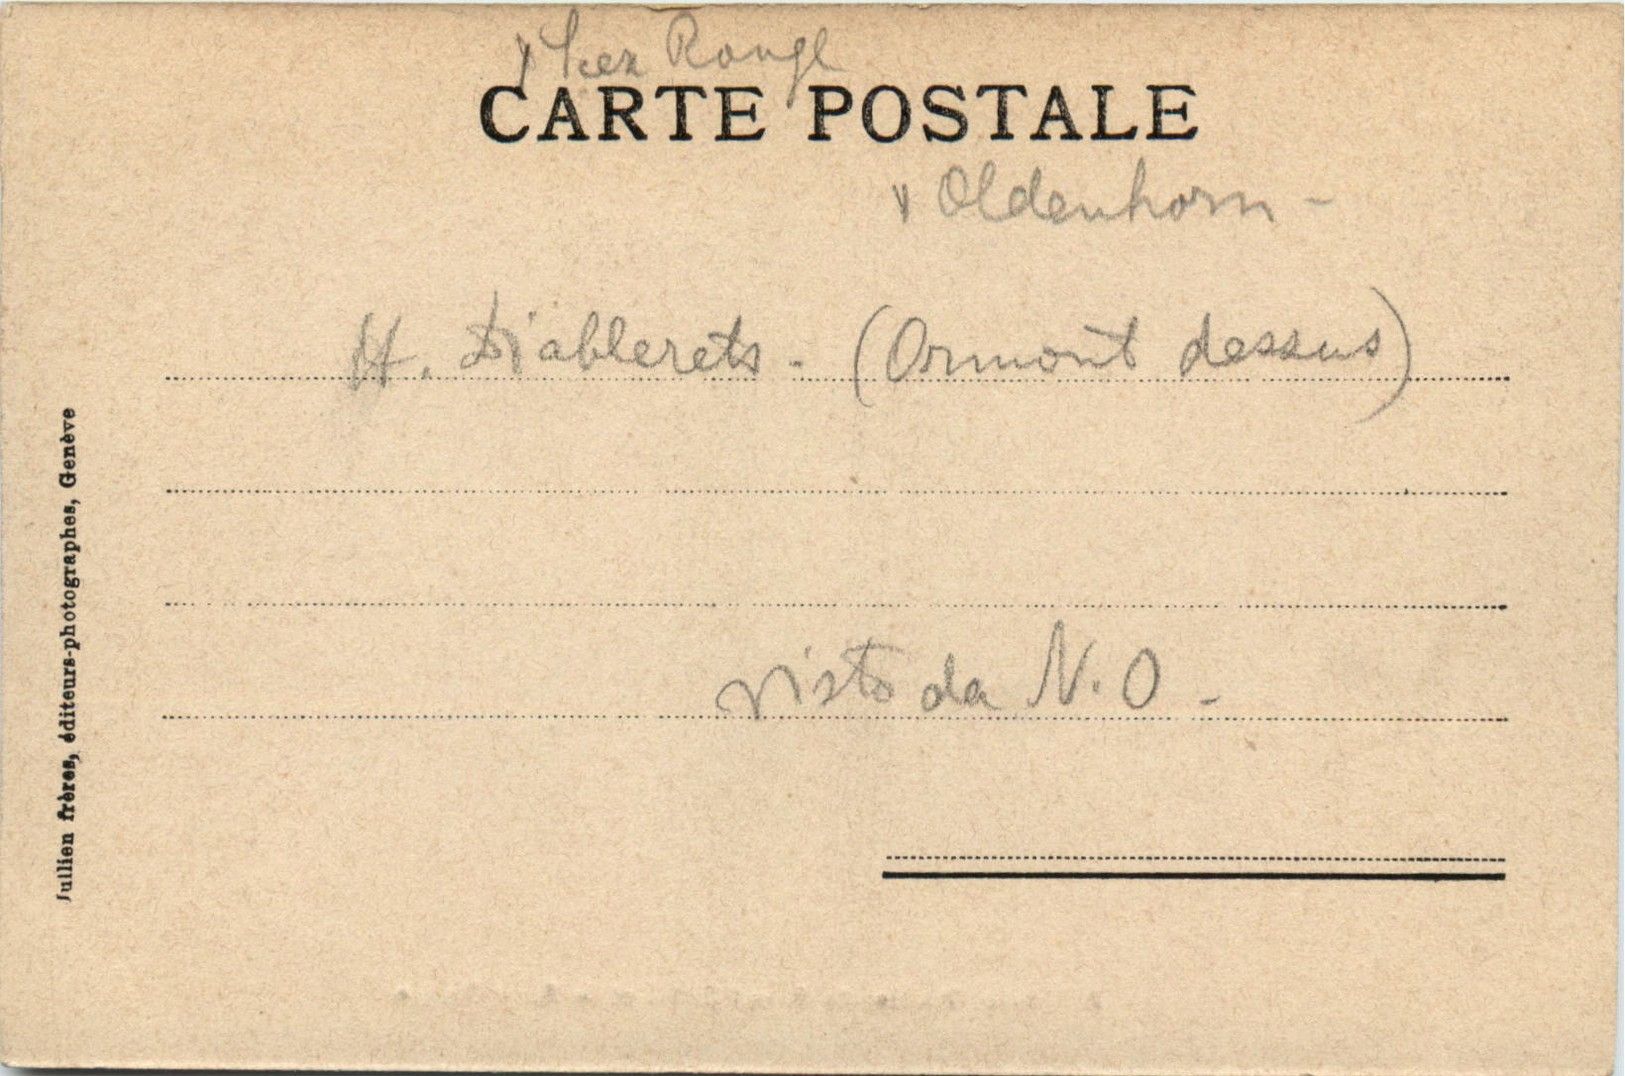 Scex Rouge
CARTE POSTALE
Oldenhorn -
H. Diablerets - (Ormont dessus)
visto da N.O -
Jullien frères, éditeurs-photographes, Genève